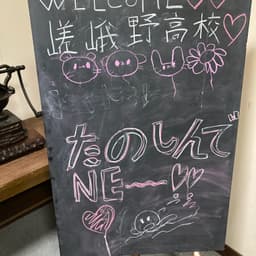 WELCOME♡♡
嵯峨野高校♡
たのしんで
NE〜♡♡